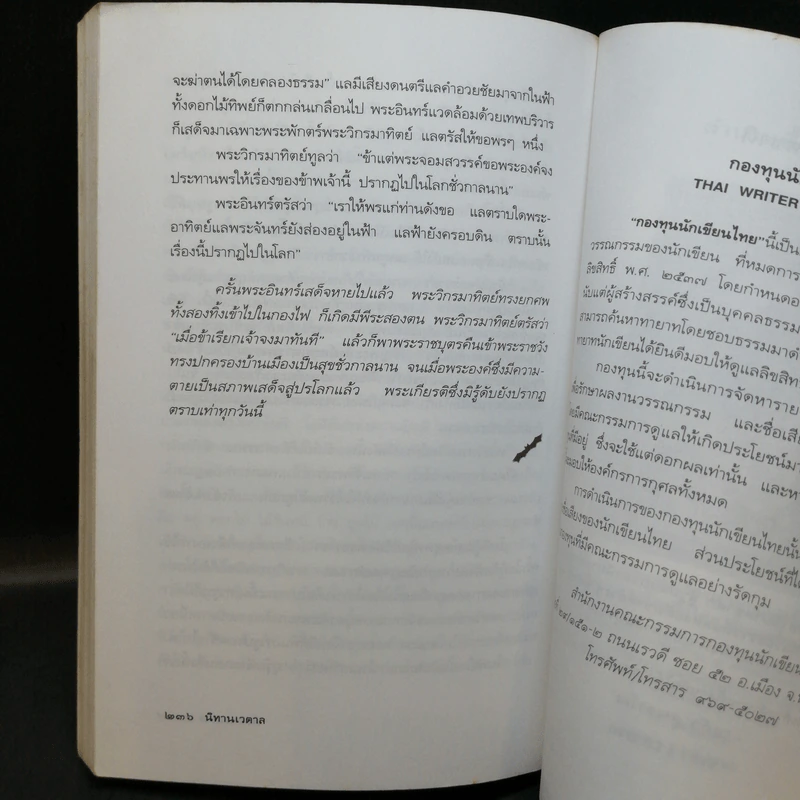 จะฆ่าตนได้โดยคลองธรรม” แลมีเสียงดนตรีแลคำอวยชัยมาจากในฟ้า
ทั้งดอกไม้ทิพย์ก็ตกกล่นเกลื่อนไป พระอินทร์แวดล้อมด้วยเทพบริวาร
ก็เสด็จมาเฉพาะพระพักตร์พระวิกรมาทิตย์ แลตรัสให้ขอพรๆ หนึ่ง
พระวิกรมาทิตย์ทูลว่า “ข้าแต่พระจอมสวรรค์ขอพระองค์จง
ประทานพรให้เรื่องของข้าพเจ้านี้ ปรากฏไปในโลกชั่วกาลนาน”
พระอินทร์ตรัสว่า “เราให้พรแก่ท่านดังขอ แลตราบใดพระ-
อาทิตย์แลพระจันทร์ยังส่องอยู่ในฟ้า แลฟ้ายังครอบดิน ตราบนั้น
เรื่องนี้ปรากฏไปในโลก”
ครั้นพระอินทร์เสด็จหายไปแล้ว พระวิกรมาทิตย์ทรงยกศพ
ทั้งสองทิ้งเข้าไปในกองไฟ ก็เกิดมีพีระสองตน พระวิกรมาทิตย์ตรัสว่า
“เมื่อข้าเรียกเจ้าจงมาทันที” แล้วก็พาพระราชบุตรคืนเข้าพระราชวัง
ทรงปกครองบ้านเมืองเป็นสุขชั่วกาลนาน จนเมื่อพระองค์ซึ่งมีความ-
ตายเป็นสภาพเสด็จสู่ปรโลกแล้ว พระเกียรติซึ่งมิรู้ดับยังปรากฏ
ตราบเท่าทุกวันนี้
๒๓๖ นิทานเวตาล
กองทุนนั
THAI WRITER
“กองทุนนักเขียนไทย”นี้เป็น
วรรณกรรมของนักเขียน ที่หมดการ
ลิขสิทธิ์ พ.ศ. ๒๕๓๗ โดยกำหนดอ
นับแต่ผู้สร้างสรรค์ซึ่งเป็นบุคคลธรรม
สามารถค้นหาทายาทโดยชอบธรรมมาดำ
ทายาทนักเขียนได้ยินดีมอบให้ดูแลลิขสิท
กองทุนนี้จะดำเนินการจัดหาราย
เพื่อรักษาผลงานวรรณกรรม และชื่อเสีย
โดยมีคณะกรรมการดูแลให้เกิดประโยชน์มา
ซึ่งจะใช้แต่ดอกผลเท่านั้น และห
มอบให้องค์กรการกุศลทั้งหมด
การดำเนินการของกองทุนนักเขียนไทยนั้น
ชื่อเสียงของนักเขียนไทย ส่วนประโยชน์ที่ได้
กองทุนที่มีคณะกรรมการดูแลอย่างรัดกุม
สำนักงานคณะกรรมการกองทุนนักเขียน
๒๙/๑๕๑-๒ ถนนเรวดี ซอย ๕๒ อ.เมือง จ.น
โทรศัพท์/โทรสาร ๙๖๙-๕๐๒๗